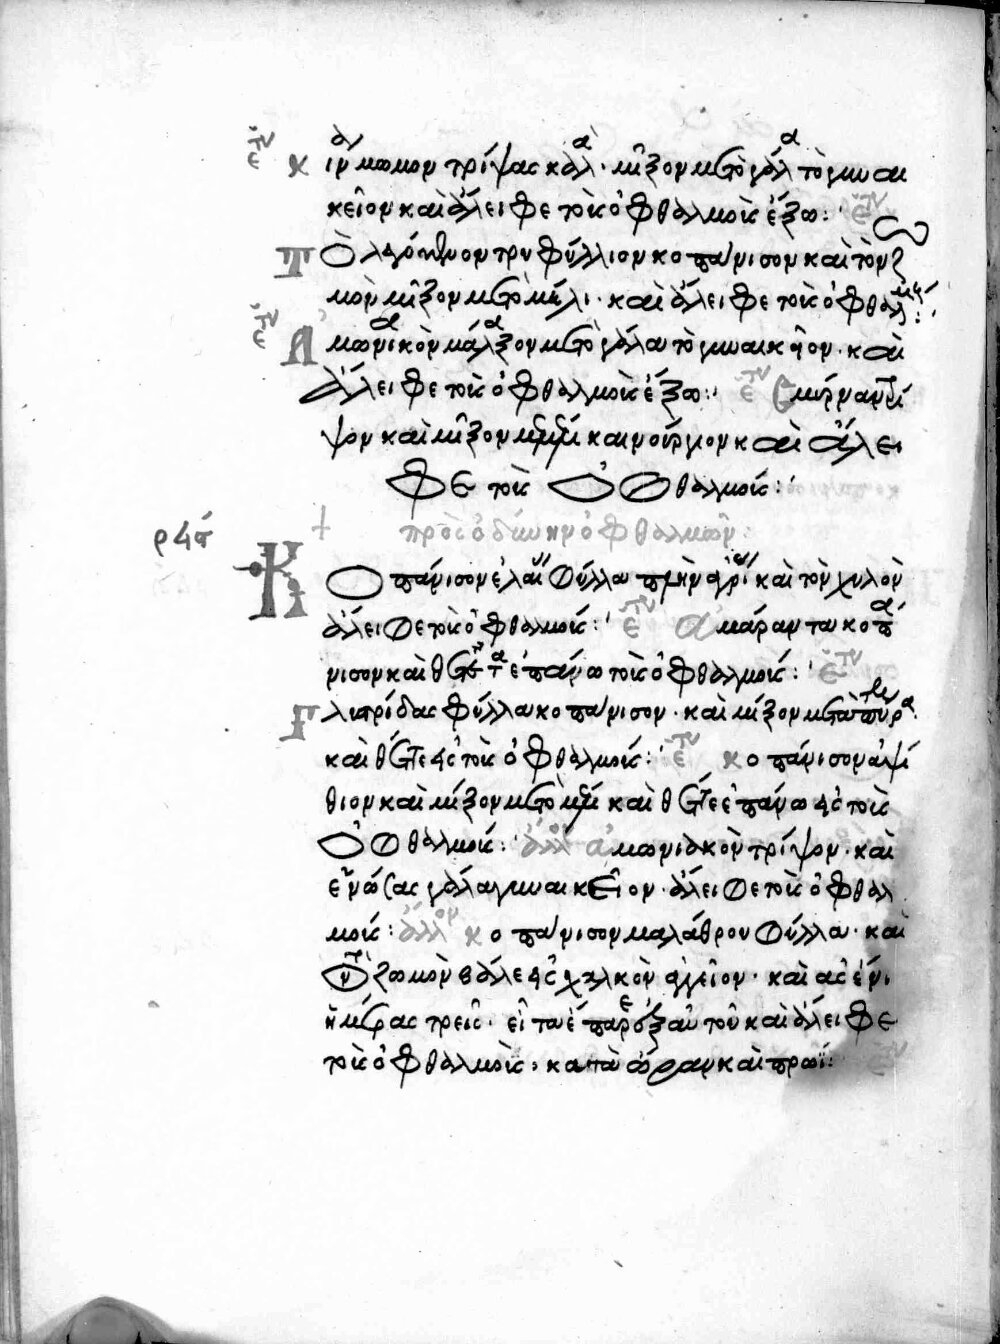 κινάμωμον τρίψας καλά· μίξον μετὸ γάλα τὸ γυναι
κεῖον καὶ ἄλειφε τοὺς ὀφθαλμοὺς ἔξω:
φύλλιον κοπάνισον καὶ τὸν ζ
μὸν μίξον μετὸ μέλι· καὶ ἄλειφε τοὺς ὀφθαλμούς:
Ἀμωνιακὸν μάλαξον μετὸ γάλα τὸ γυναικῆον· καὶ
ἄλειφε τοὺς ὀφθαλμοὺς ἔξω: ἔτι σμύρναν τρί
ψον καὶ μίξον καὶ ἄλει
φε τοὺς ὀφθαλμούς:
ρϟϛ πρὸς ὀδύνην ὀφθαλμῶν:
Κοπάνισον ἐλαίας φύλλα καὶ τὸν χυλὸν
ἄλειφε τοὺς ὀφθαλμούς: ἔτι ἀμάραντα κοπά
νισον καὶ θὲς ἐπάνω τοὺς ὀφθαλμούς: ἔτι
Γλιστρίδας φύλλα κοπάνισον· καὶ μίξον μετὰ πίτυρα
καὶ θέτε εἰς τοὺς ὀφθαλμούς: ἔτι κοπάνισον ἀψί
θιον καὶ μίξον μετὸ μέλι καὶ θέτε ἐπάνω εἰς τοὺς
ὀφθαλμούς: ἄλλο ἀμωνιακὸν τρίψον· καὶ
ἑνώσας γάλα γυναικεῖον· ἄλειφε τοὺς ὀφθαλ
μούς: ἄλλον κοπάνισον μαλάθρου φύλλα· καὶ
τὸν ζωμὸν βάλε εἰς χαλκὸν ἀγγεῖον· καὶ ἂς ἔνι
ἡμέρας τρεῖς· εἶτα ἔπαρε ἐξ αὐτοῦ καὶ ἄλειφε
τοὺς ὀφθαλμούς· κατὰ ὥραν καὶ πρωΐ: